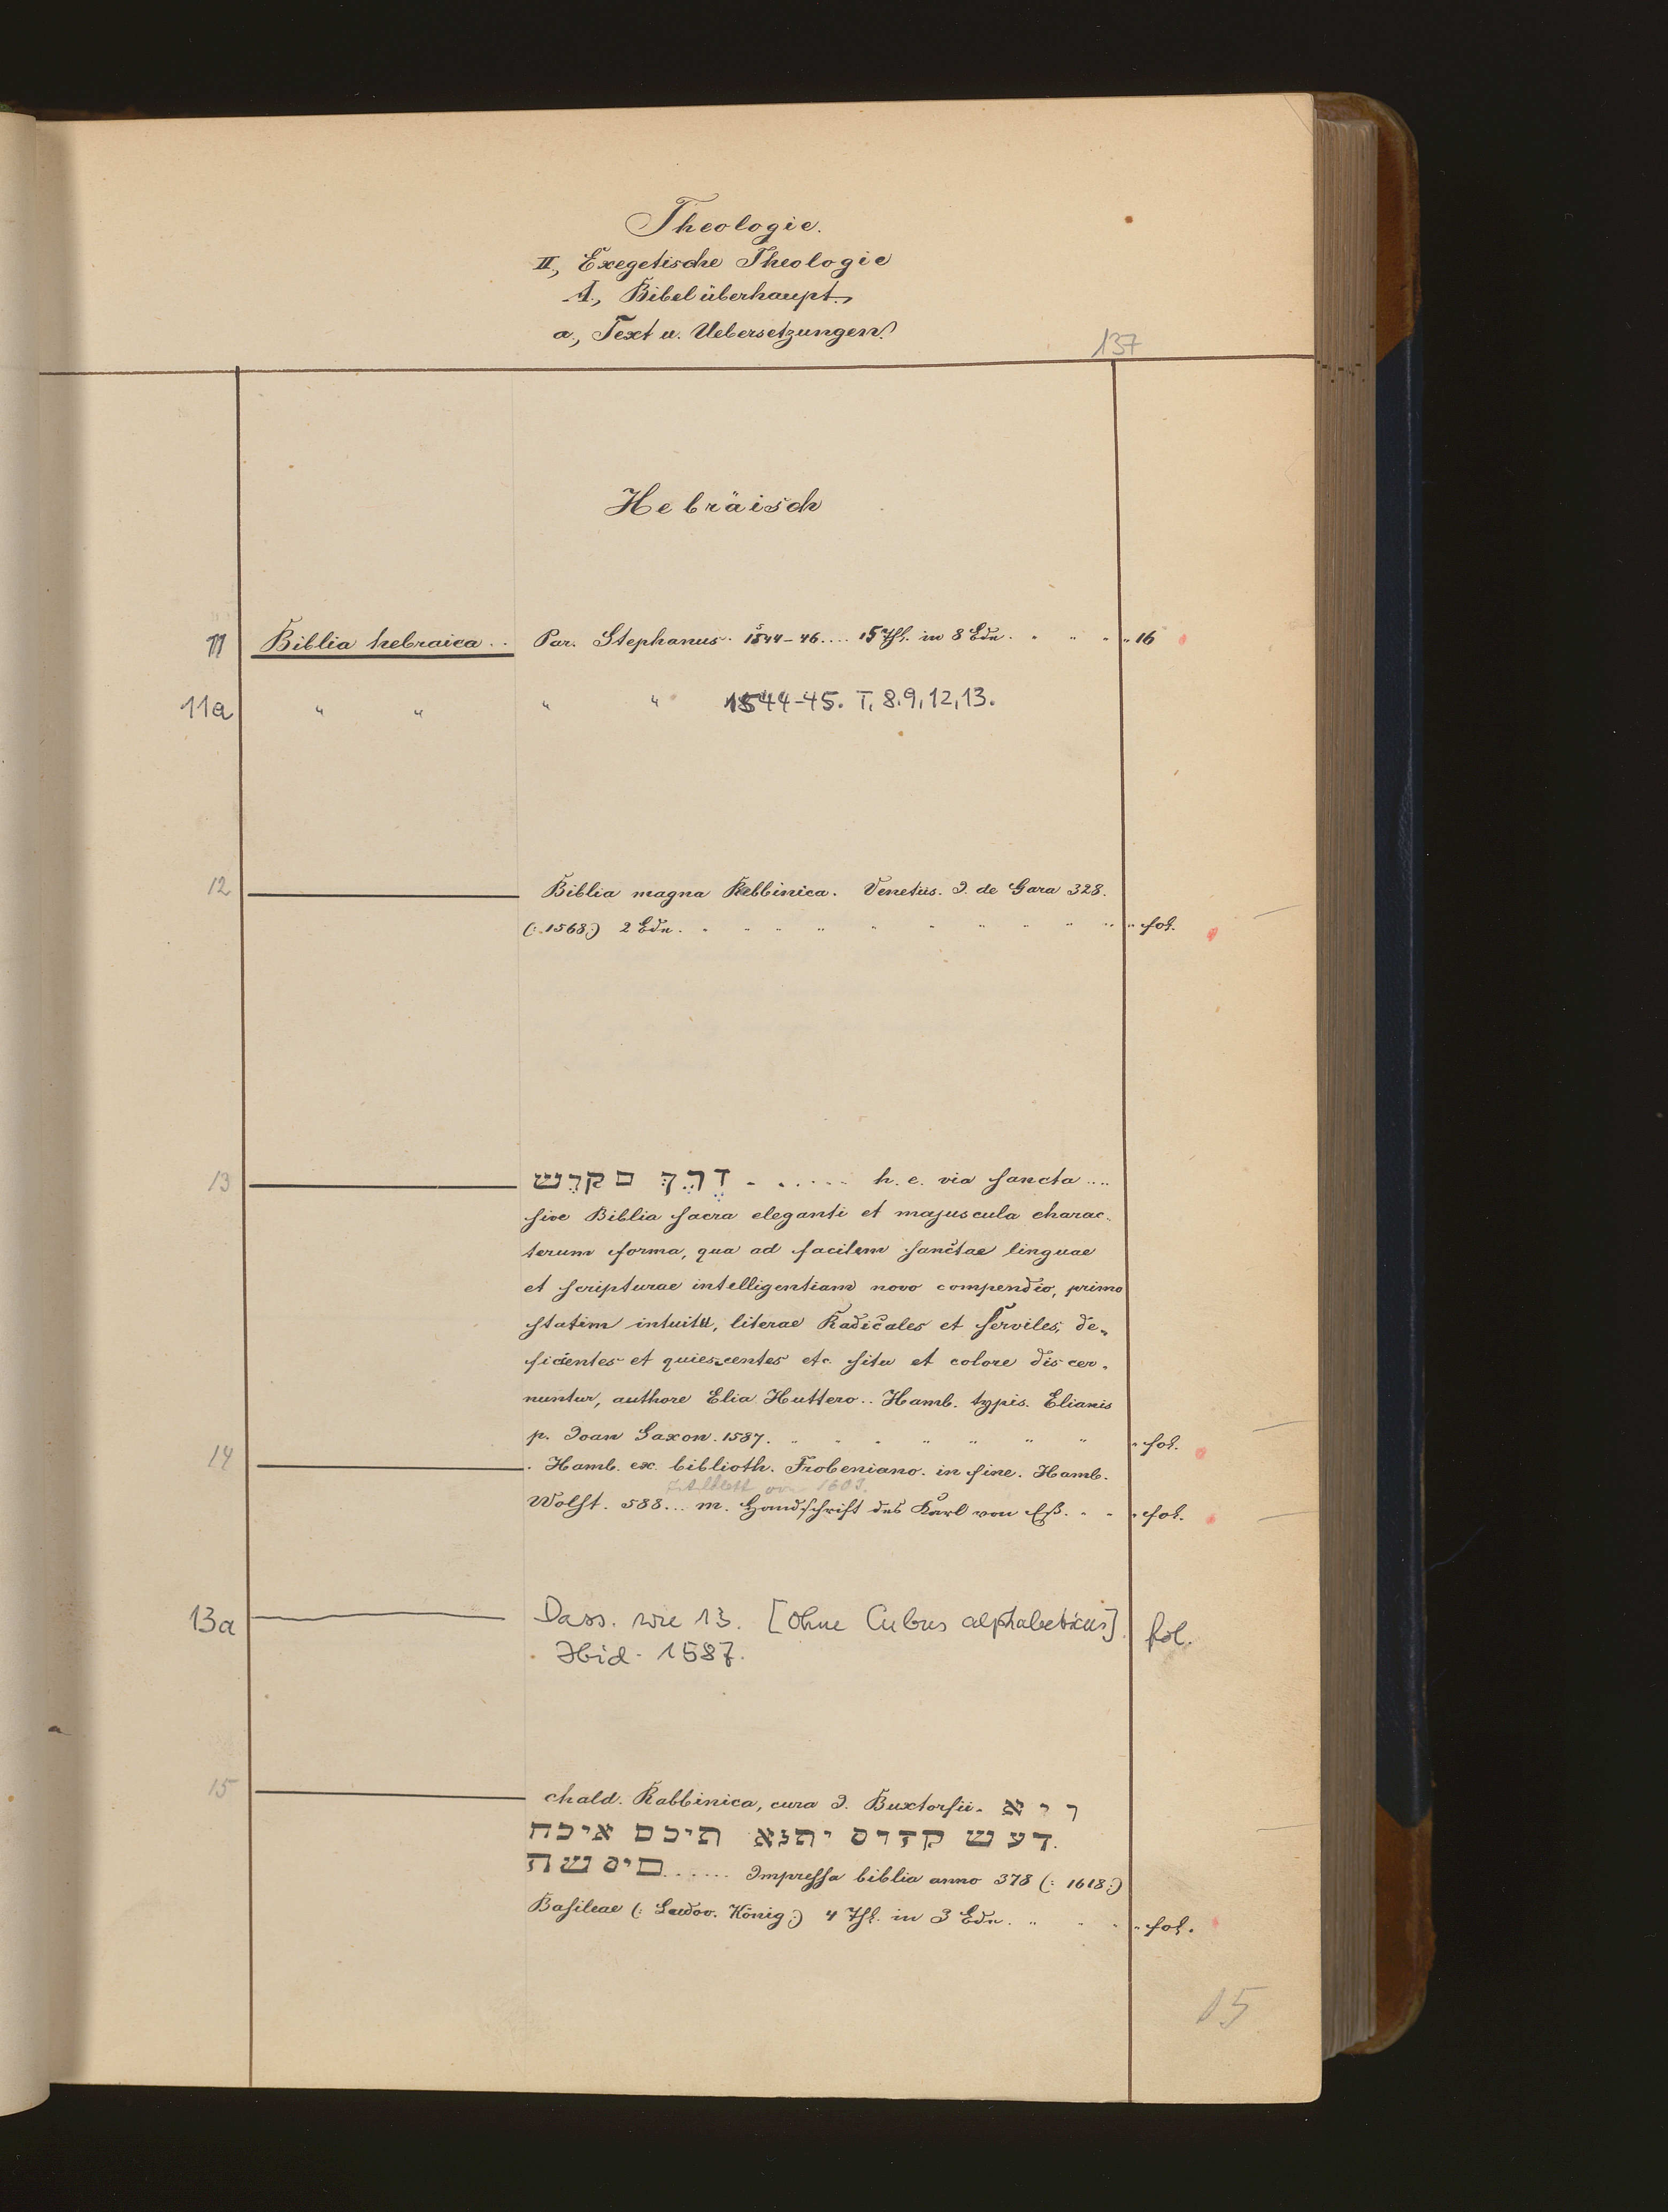 Theologie.
II, Exegetische Theologie
A, Bibel überhaupt.
a, Text u. Uebersetzungen.
137
Hebräisch
11 Biblia hebraica .. Par. Stephanus. 1544-46.... 15 Thl. in 8 Bdn. " " " " 16
11a " " " " 1544-45. T, 8,9,12,13.
12 Biblia magna Rabbinica. Venetiis. J. de Gara 328.
(: 1568:) 2 Bdn. " " " " " " " " " " fol.
13 דֶרֶךְ ם קדֶש - . ..... h. e. via sancta ....
sive Biblia sacra eleganti et majuscula charac-
terum forma, qua ad facilem sanctae linguae
et scripturae intelligentiam novo compendio, primo
statim intuitu, literae Radicales et Serviles, de-
ficientes et quiescentes etc. situ et colore discer-
nuntur, authore Elia Huttero .. Hamb. typis. Elianis
p. Joan Saxon. 1587. " " " " " " " " fol.
14 . Hamb. ex. biblioth. Frobeniano. in fine. Hamb.
1603.
Wolft. 588... m. Handschrift des Karl von Eß. " " " fol.
13a Dass. wie 13. [Ohne Cubus alphabeticus] fol.
Ibid. 1587.
15 chald. Rabbinica, cura J. Buxtorfii. א י ר
חכיא םכית אנתי סרדק ש עד.
השפים ...... Impressa biblia anno 378 (: 1618:)
Basileae (: Ludov. König:) 4 Thl. in 3 Bdn. " " " " fol.
15